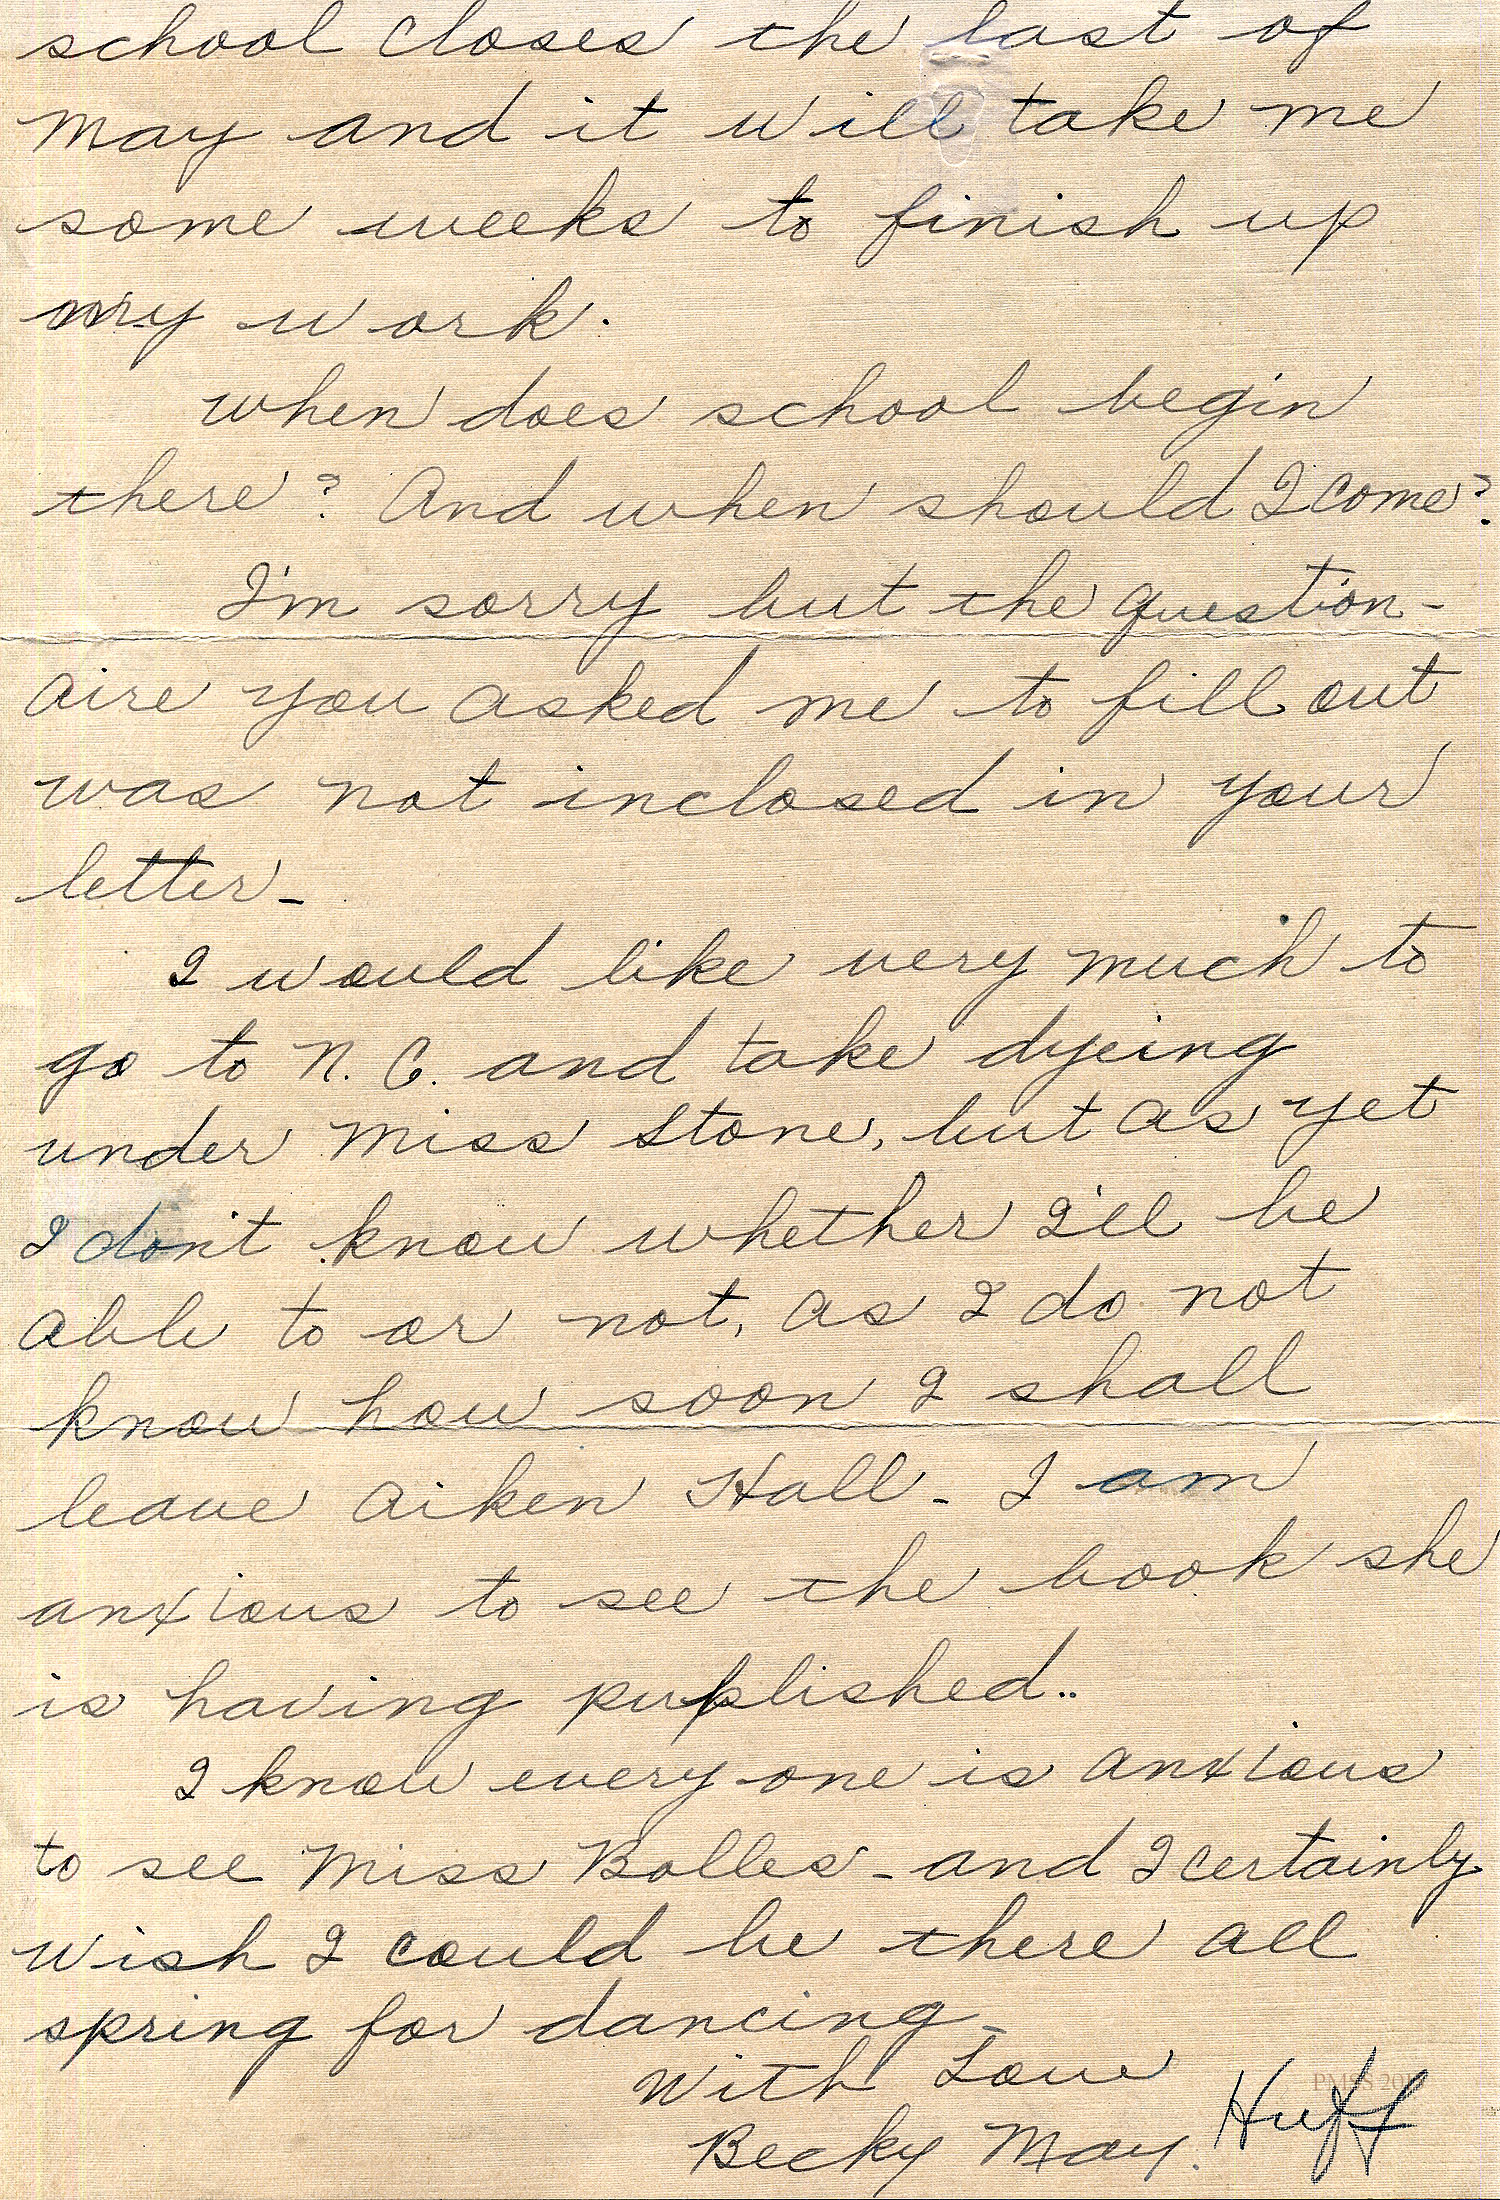 school closes the last of
May and it will take me
some weeks to finish up
my work.
when does school begin
there? And when should I come?
I'm sorry but the question-
aire you asked me to fill out
was not inclosed in your
letter-
I would like very much to
go to N. C. and take dyeing
under Miss Stone, but as yet
I don't know whether I'll be
able to or not, as I do not
know how soon I shall
leave Aiken Hall - I am
anxious to see the book she
is having puplished..
I know every one is anxious
to see Miss Bolles - and I certainly
wish I could be there all
spring for dancing-
With Love
Becky May. Huff